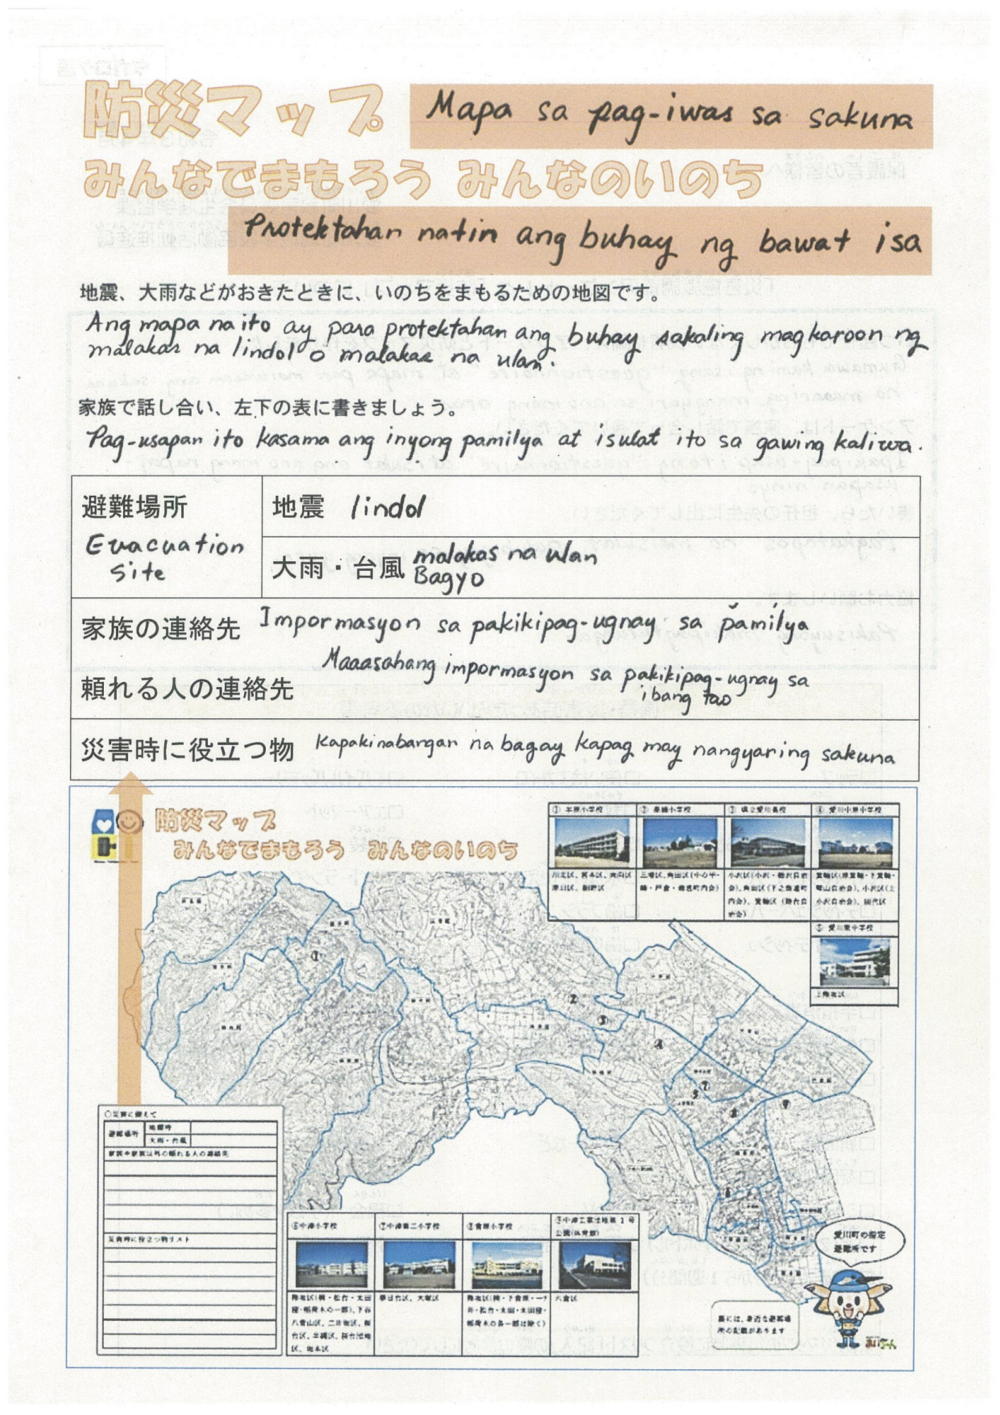 防災マップ Mapa sa pag-iwas sa sakuna
みんなでまもろう みんなのいのち
Protektahan natin ang buhay ng bawat isa
地震、大雨などがおきたときに、いのちをまもるための地図です。
Ang mapa na ito ay para protektahan ang buhay sakaling magkaroon ng
malakas na lindol o malakas na ulan.
家族で話し合い、左下の表に書きましょう。
Pag-usapan ito kasama ang inyong pamilya at isulat ito sa gawing kaliwa.
避難場所
Evacuation
Site
地震 lindol
大雨・台風 malakas na ulan
Bagyo
家族の連絡先 Impormasyon sa pakikipag-ugnay sa pamilya
頼れる人の連絡先 Maaasahang impormasyon sa pakikipag-ugnay sa
ibang tao
災害時に役立つ物 Kapakinabangan na bagay kapag may nangyaring sakuna
防災マップ
みんなでまもろう みんなのいのち
① 半原小学校
③ 県立愛川高校
④ 愛川中原中学校
⑤ 愛川東中学校
上熊坂区
○災害に備えて
避難場所
地震時
大雨・台風
家族や家族以外の頼れる人の連絡先
災害時に役立つ物リスト
⑥中津小学校
⑦中津第二小学校
⑧菅原小学校
⑨中津工業団地第１号
公園(体育館)
春日台区、大塚区
六倉区
愛川町の指定
避難所です
裏には、身近な避難場
所の記載があります